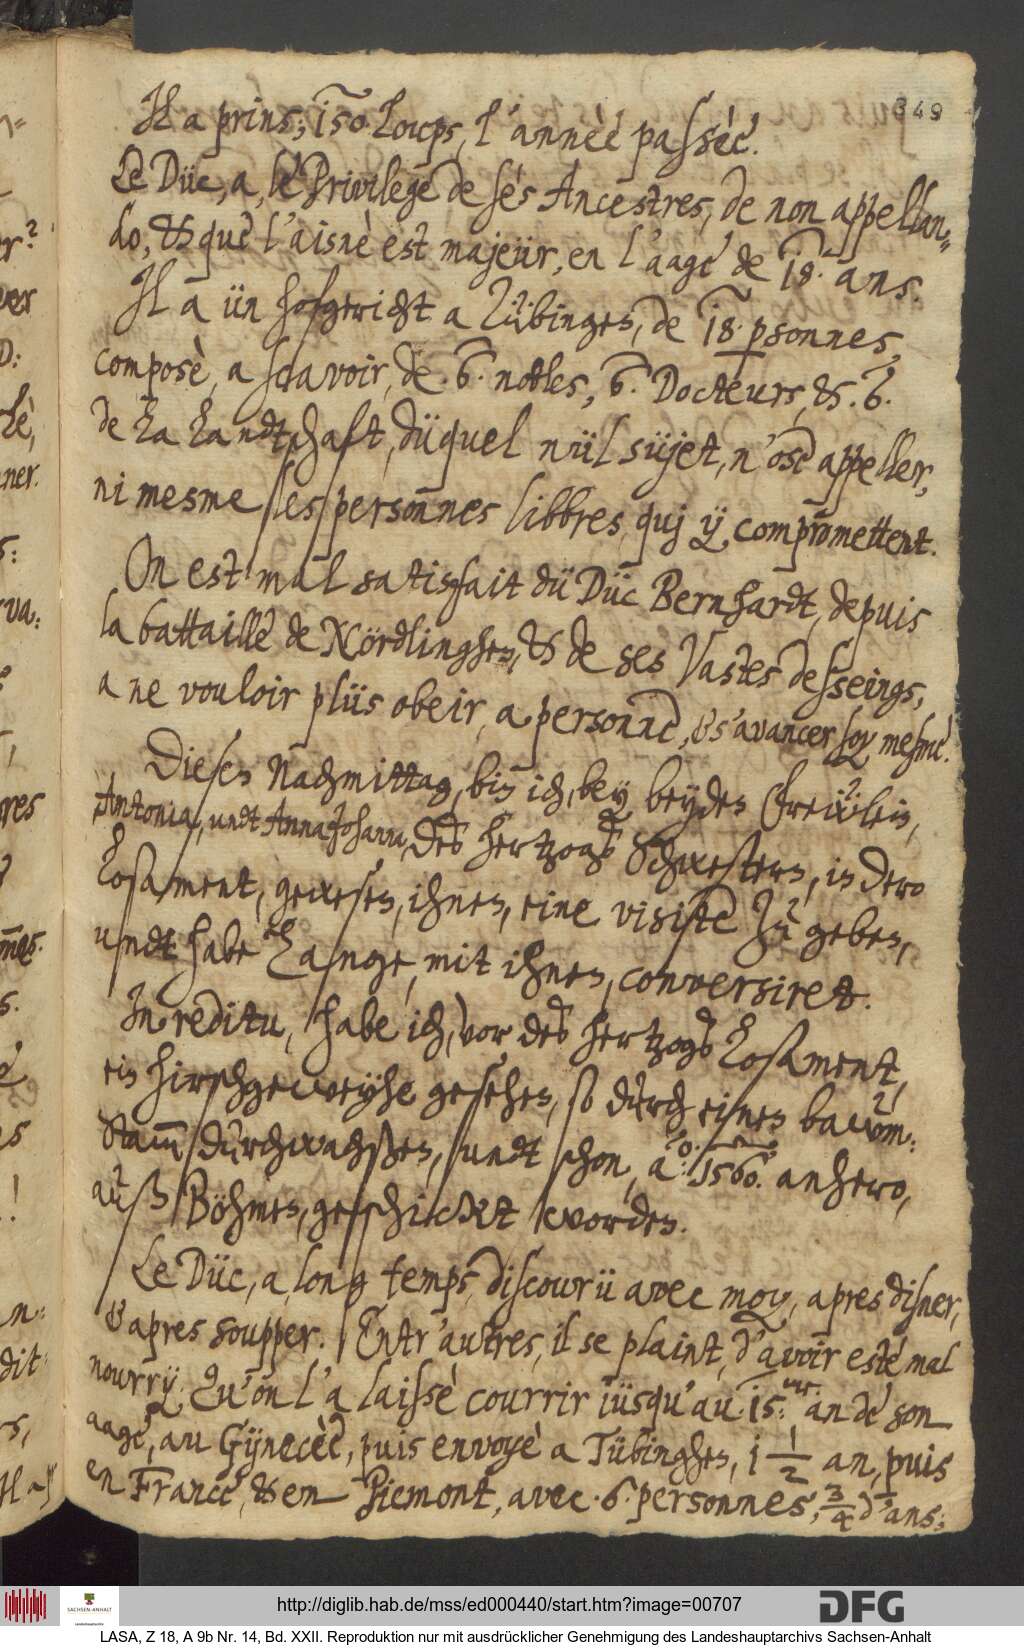 349
Il a prins; 150 Loups, l'annèè passèe.
Le Düc, a, le Privilege de ses Ancestres, de non appellan=
do, & que l'aisnè est majeür, en l'aage de 18. ans.
Il a ün hofgericht a Tübingen, de 18. personnes,
composè, a scavoir, de .6. nobles, 6. Docteurs, & .6.
de La Landtschaft, düquel nül süjet, n'ose appeller,
ni mesme les personnes libbres, quj ÿ compromettent.
On est mal satisfait dü Düc Bernhardt, depuis
la battaille de Nördlinghen, & de ses vastes desseings,
a ne vouloir plüs obeir, a personne, & s'avancer soy mesme.
Diesen Nachmittag, bin ich, bey beyden Freẅlein,
Antonia, undt Anna Johanna, des hertzogs Schwestern, in dero
Losament, gewesen, ihnen, eine visiste zu geben,
undt habe Lange, mit ihnen, conversiret.
In reditu, habe ich, vor des hertzogs Losament,
ein hirschgeweyhe gesehen, so durch einen bawm=
stam̅ durchwachßen, undt schon, ao: 1560. anhero,
auß Böhmen, geschickt worden.
Le Düc, a long temps, discourü avec moy, apres disner,
& apres soupper. Entr'autres, il se plaint, d'avoir estè mal
nourrÿ. Qu'on l'a laissè courrir jüsqu'au .15.me. an de son
aage, au Gÿnecèe, puis envoyè a Tübinghen, 1 1/2 an, puis
en France, & en Piemont, avec .6. personnes, 3/4 d'ans;
http://diglib.hab.de/mss/ed000440/start.htm?image=00707
SACHSEN-ANHALT
DFG
LASA, Z 18, A 9b Nr. 14, Bd. XXII. Reproduktion nur mit ausdrücklicher Genehmigung des Landeshauptarchivs Sachsen-Anhalt